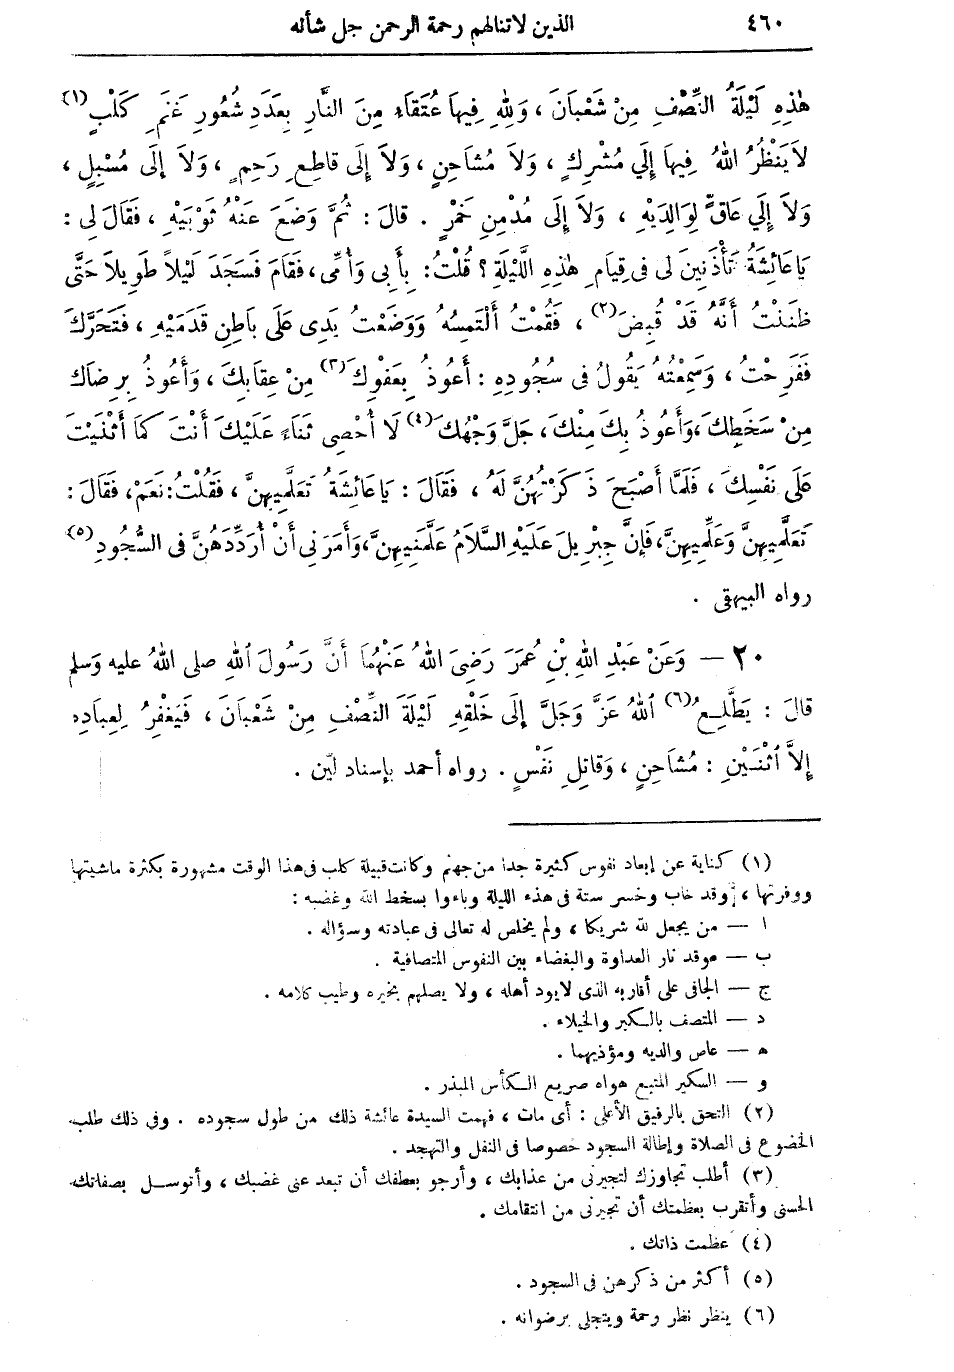 ٤٦٠ الذين لاتنالهم رحمة الرحمن جل شأنه
هٰذِهِ لَيْلَةُ النِّصْفِ مِنْ شَعْبَانَ ، وَلِلّٰهِ فِيهَا عُتَقَاءُ مِنَ النَّارِ بِعَدَدِ شُعُورِ غَنَمِ كَلْبٍ(١)
لاَ يَنْظُرُ اللهُ فِيهَا إِلَي مُشْرِكٍ ، وَلاَ مُشَاحِنٍ ، وَلاَ إِلَى قَاطِعِ رَحِمٍ ، وَلاَ إِلَى مُسْبِلٍ ،
وَلاَ إِلَي عَاقٍّ لِوَالِدَيْهِ ، وَلاَ إِلَى مُدْمِنِ خَمْرٍ . قالَ : ثُمَّ وَضَعَ عَنْهُ ثَوْبَيْهِ ، فَقَالَ لِى :
يَا عَائِشَةُ تَأْذَنِينَ لِى فِى قِيَامِ هٰذِهِ اللَّيْلَةِ ؟ قُلْتُ : بِأَبِى وَأُمِّى ، فَقَامَ فَسَجَدَ لَيْلاً طَوِيلاً حَتَّى
ظَنَنْتُ أَنَّهُ قَدْ قُبِضَ(٢) ، فَقُمْتُ أَلْتَمِسُهُ وَوَضَعْتُ يَدِى عَلَى بَاطِنِ قَدَمَيْهِ ، فَتَحَرَّكَ
فَفَرِحْتُ ، وَسَمِعْتُهُ يَقُولُ فِى سُجُودِهِ : أَعُوذُ بِعَفْوِكَ(٣) مِنْ عِقَابِكَ ، وَأَعُوذُ بِرِضَاكَ
مِنْ سَخَطِكَ ، وَأَعُوذُ بِكَ مِنْكَ ، جَلَّ وَجْهُكَ(٤) لَا أُحْصِى ثَنَاءً عَلَيْكَ أَنْتَ كَمَا أَثْنَيْتَ
عَلَى نَفْسِكَ ، فَلَمَّا أَصْبَحَ ذَكَرْتُهُنَّ لَهُ ، فَقَالَ : يَا عَائِشَةُ تَعَلَّمِيهِنَّ ، فَقُلْتُ : نَعَمْ ، فَقَالَ :
تَعَلَّمِيهِنَّ وَعَلِّمِيهِنَّ ، فَإِنَّ جِبْرِيلَ عَلَيْهِ السَّلاَمُ عَلَّمَنِيهِنَّ ، وَأَمَرَنِى أَنْ أُرَدِّدَهُنَّ فِى السُّجُودِ(٥)
رواه البيهقى .
٢٠ — وَعَنْ عَبْدِ اللهِ بْنِ عُمَرَ رَضِىَ اللهُ عَنْهُمَا أَنَّ رَسُولَ اللهِ صلى اللهُ عليه وَسلم
قالَ : يَطَّلِعُ(٦) اللهُ عَزَّ وَجَلَّ إِلَى خَلْقِهِ لَيْلَةَ النِّصْفِ مِنْ شَعْبَانَ ، فَيَغْفِرُ لِعِبَادِهِ
إِلاَّ اثْنَيْنِ : مُشَاحِنٍ ، وَقَاتِلِ نَفْسٍ . رواه أحمد بإسناد لَيِّن .
(١) كناية عن إبعاد نفوس كثيرة جدا من جهنم وكانت قبيلة كلب فى هذا الوقت مشهورة بكثرة ماشيتها
ووفرتها ، وقد خاب وخسر ستة فى هذه الليلة وباءوا بسخط الله وغضبه :
ا — من يجعل لله شريكا ، ولم يخلص له تعالى فى عبادته وسؤاله .
ب — موقد نار العداوة والبغضاء بين النفوس المتصافية .
ج — الجافى على أقاربه الذى لايود أهله ، ولا يصلهم بخيره وطيب كلامه .
د — المتصف بالكبر والخيلاء .
ه — عاص والديه ومؤذيهما .
و — السكير المتبع هواه صريع الكأس المبذر .
(٢) التحق بالرفيق الأعلى : أى مات ، فهمت السيدة عائشة ذلك من طول سجوده . وفى ذلك طلب
الخضوع فى الصلاة وإطالة السجود خصوصا فى النفل والتهجد .
(٣) أطلب تجاوزك لتجيرنى من عذابك ، وأرجو بعطفك أن تبعد عنى غضبك ، وأتوسل بصفاتك
الحسنى وأتقرب بعظمتك أن تجيرنى من انتقامك .
(٤) عظمت ذاتك .
(٥) أكثر من ذكرهن فى السجود .
(٦) ينظر نظر رحمة ويتجلى برضوانه .